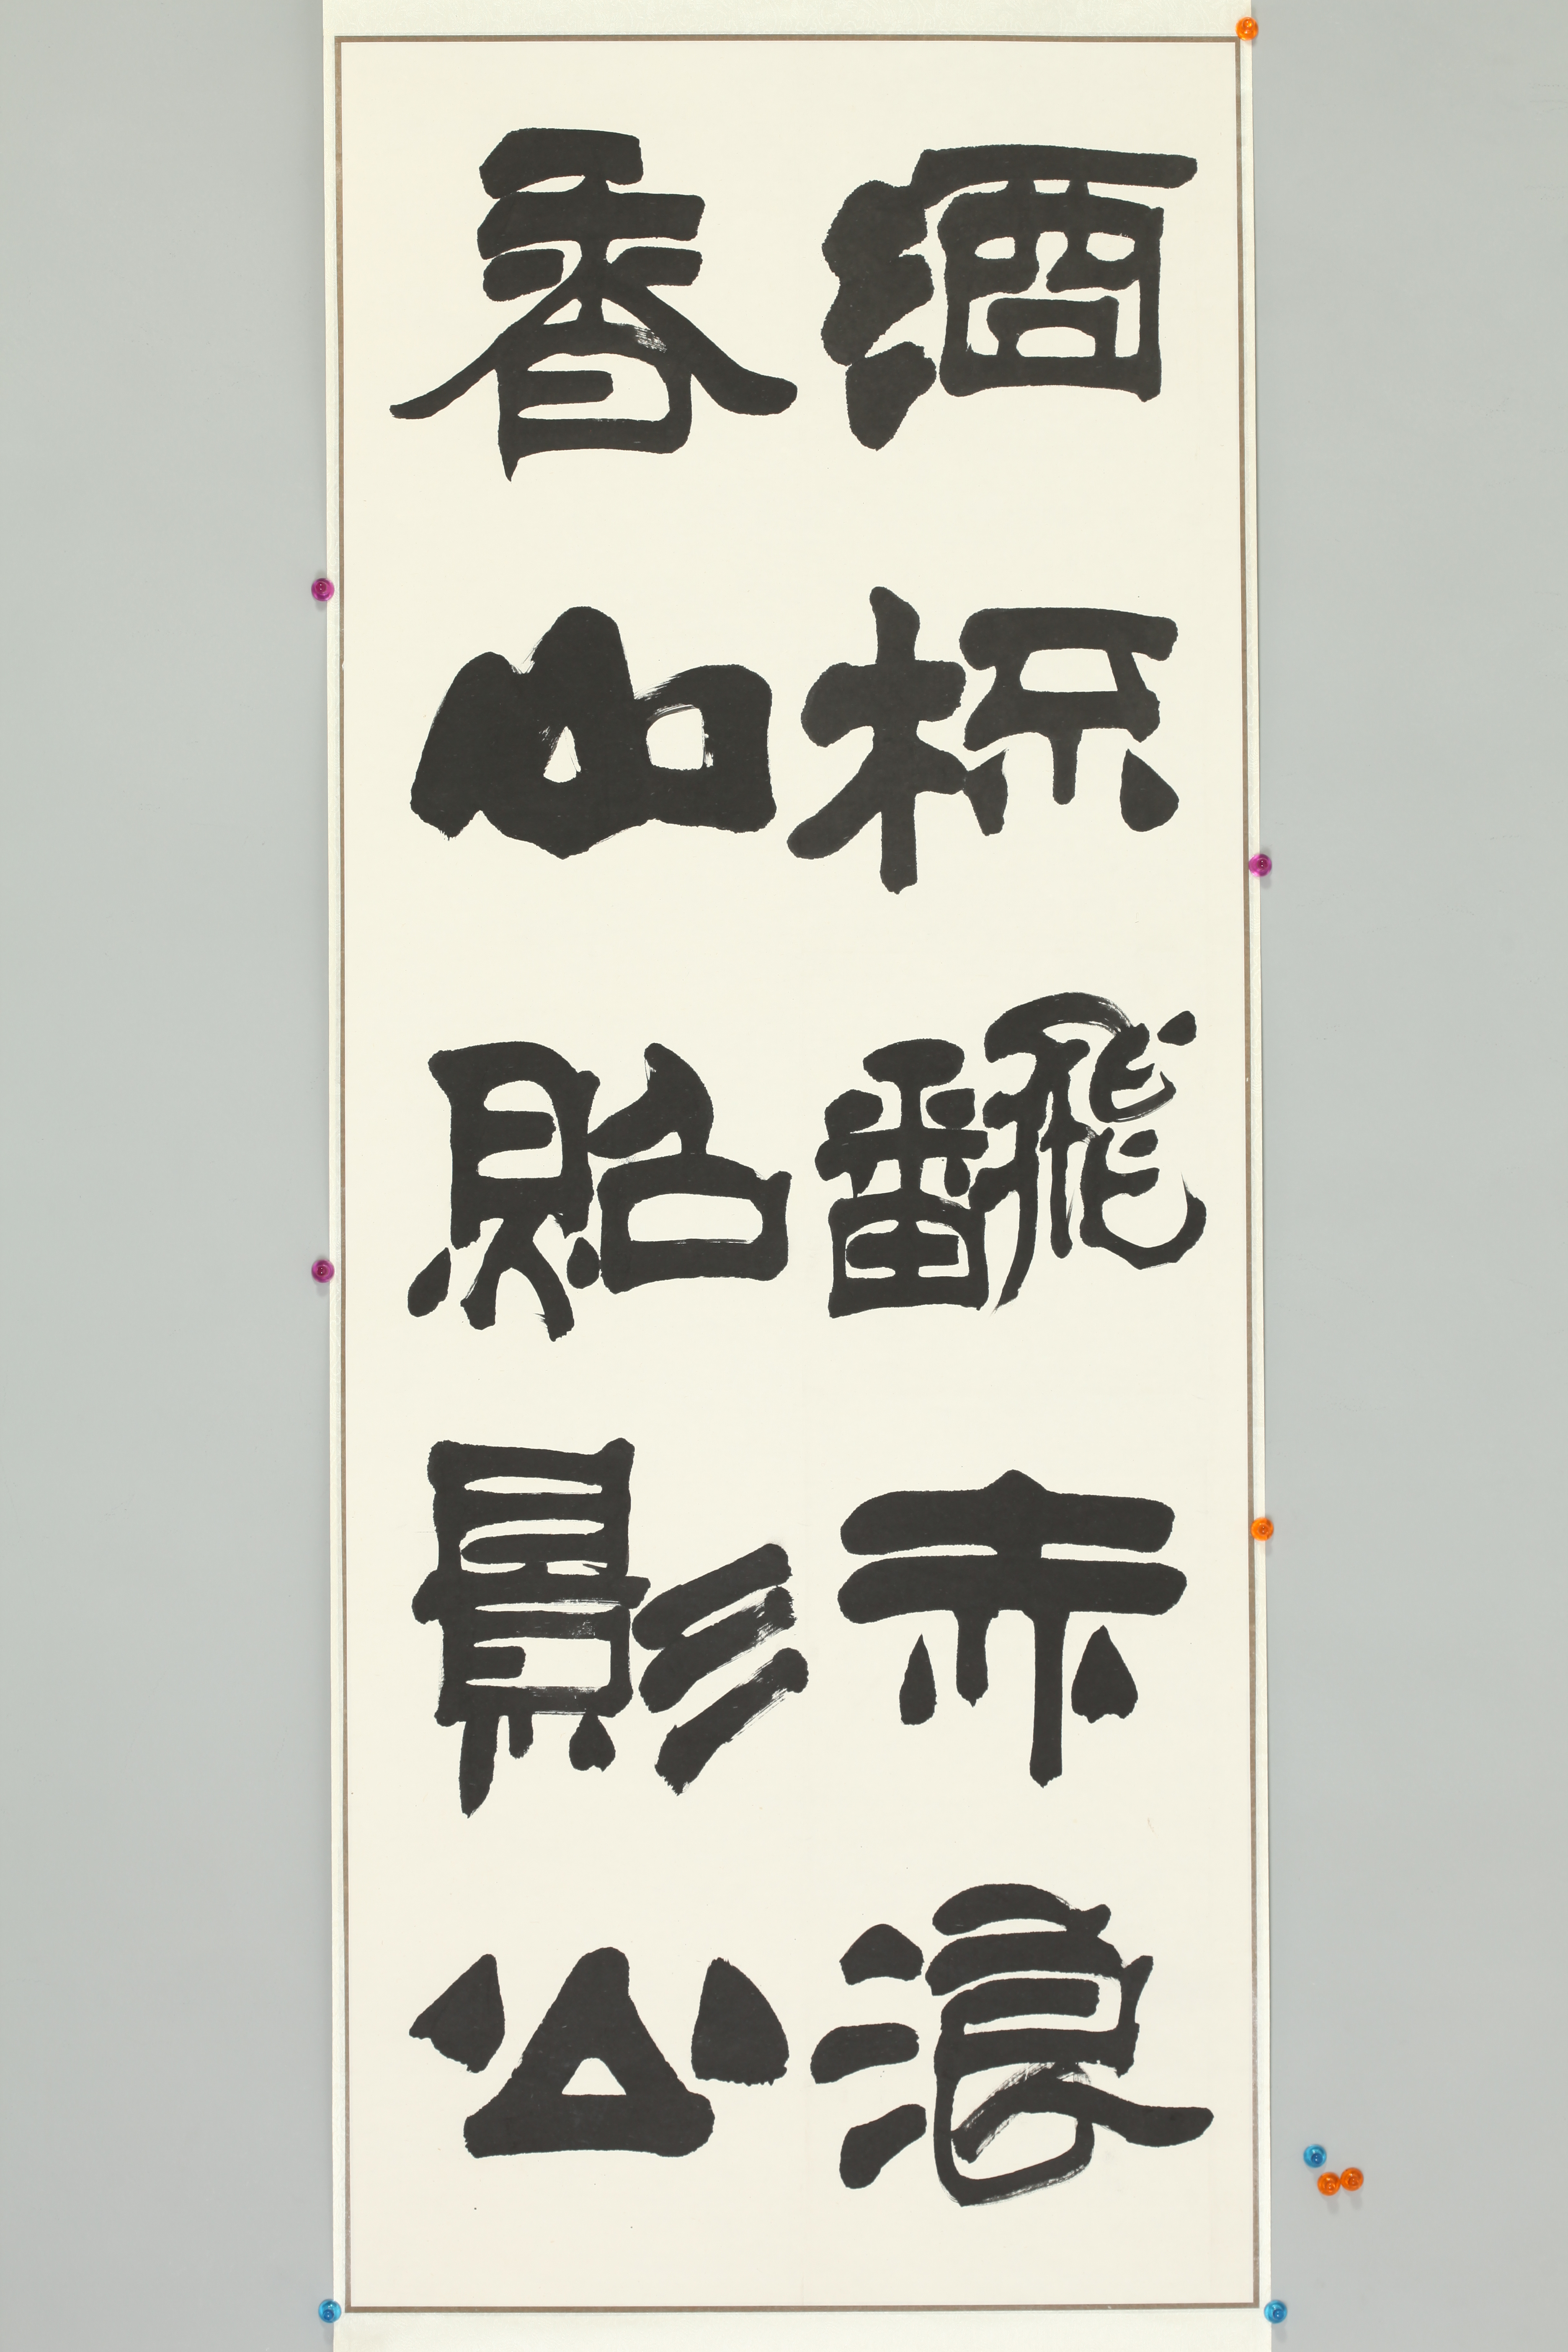 酒杯飜赤浪
香山貽影公